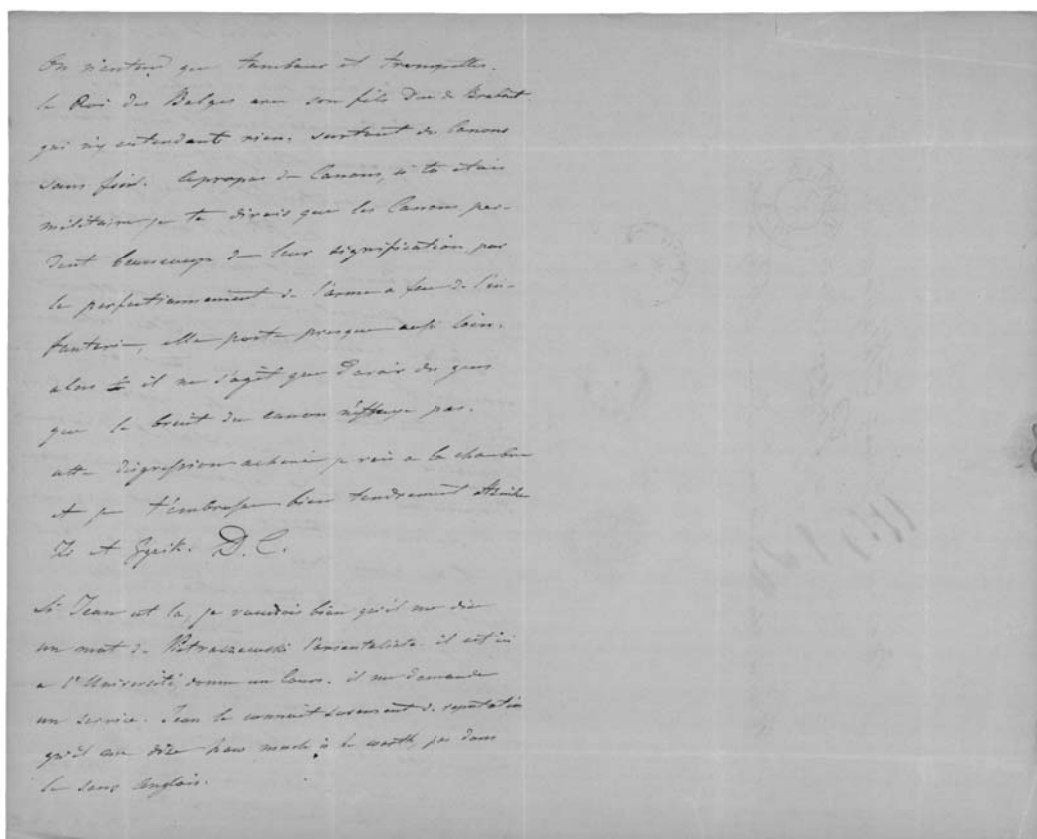 On n'entend que tambours et trompettes.
le Roi des Belges avec son fils Duc de Brabant
qui n'y entendants rien. surtout de Canons
sans fin. Apropos de Canons, si tu étais
militaire je te dirais que les Canons per-
dent beaucoup de leur signification par
le perfectionnement de l'arme a feu de l'in-
fanterie, elle porte presque aussi loin.
alors il ne s'agit que d'avoir des gens
que le bruit du canon n'effraye pas.
cette digression achevée je vais a la chambre
et je t'embrasse bien tendrement
et D. C.
Si Jean est la, je voudrais bien qu'il me dise
un mot de Pietraszewski l'orientaliste il est ici
a l'Université, donne un Cours. il me demande
un service. Jean le connait surement de reputation
qu'il me dise how much is he worth, pas dans
le sens Anglais.